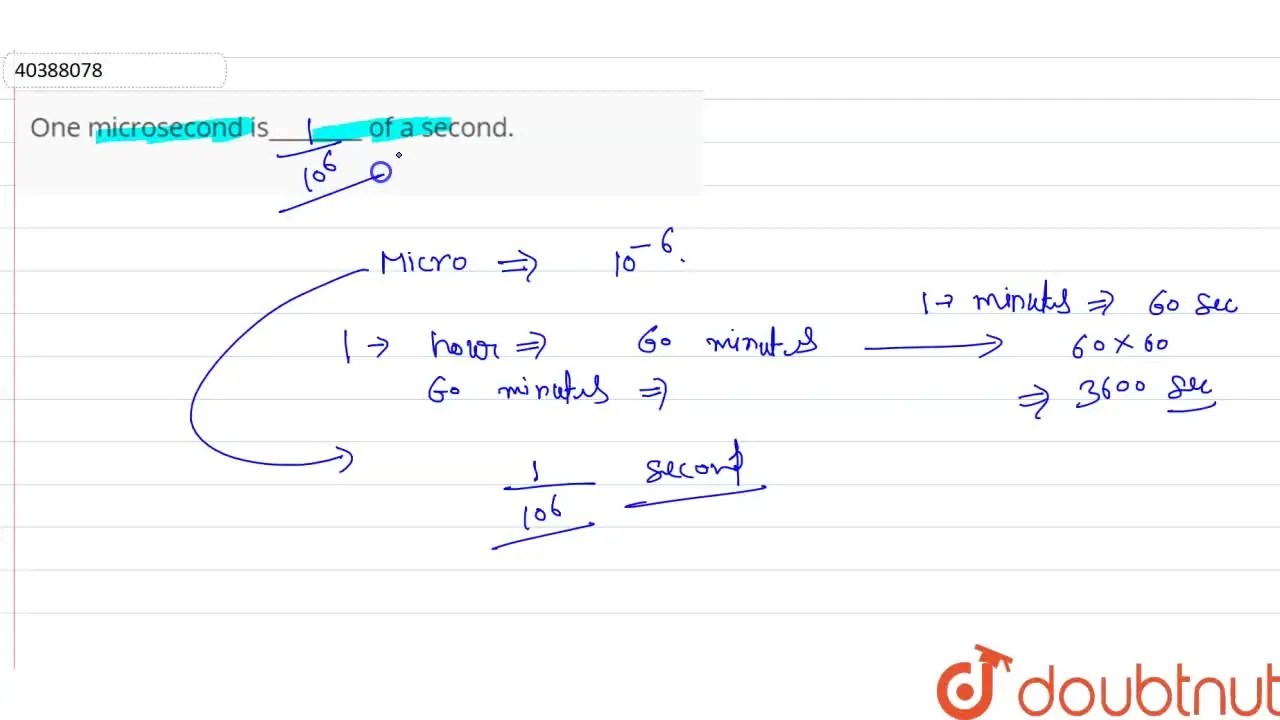 40388078
One microsecond is 1/10⁶ of a second.
Micro ⇒ 10⁻⁶.
1 → minutes ⇒ 60 sec
1 → hour ⇒ 60 minutes → 60 × 60
60 minutes ⇒ ⇒ 3600 sec
1/10⁶ second
doubtnut